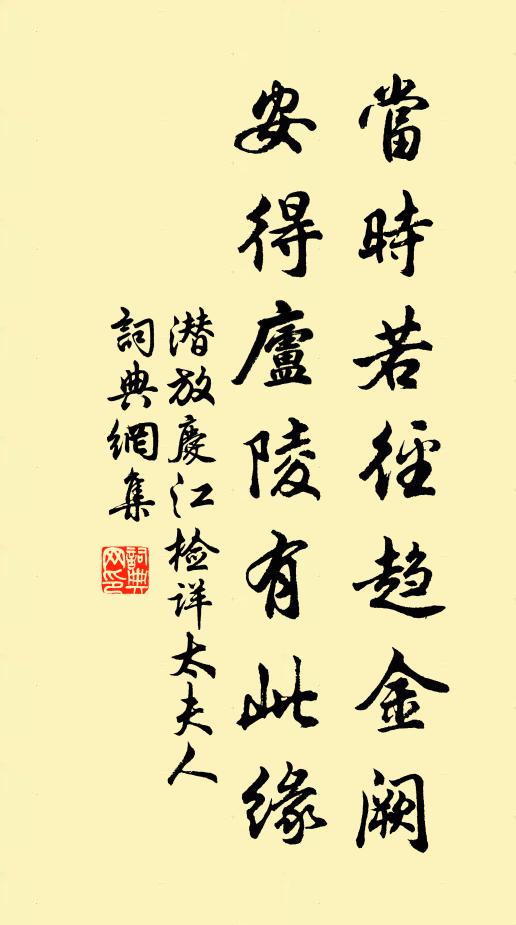 當時若徑趨金阙
安得廬陵有此緣
潜放慶江检详太夫人
詞典網集
詞典网印